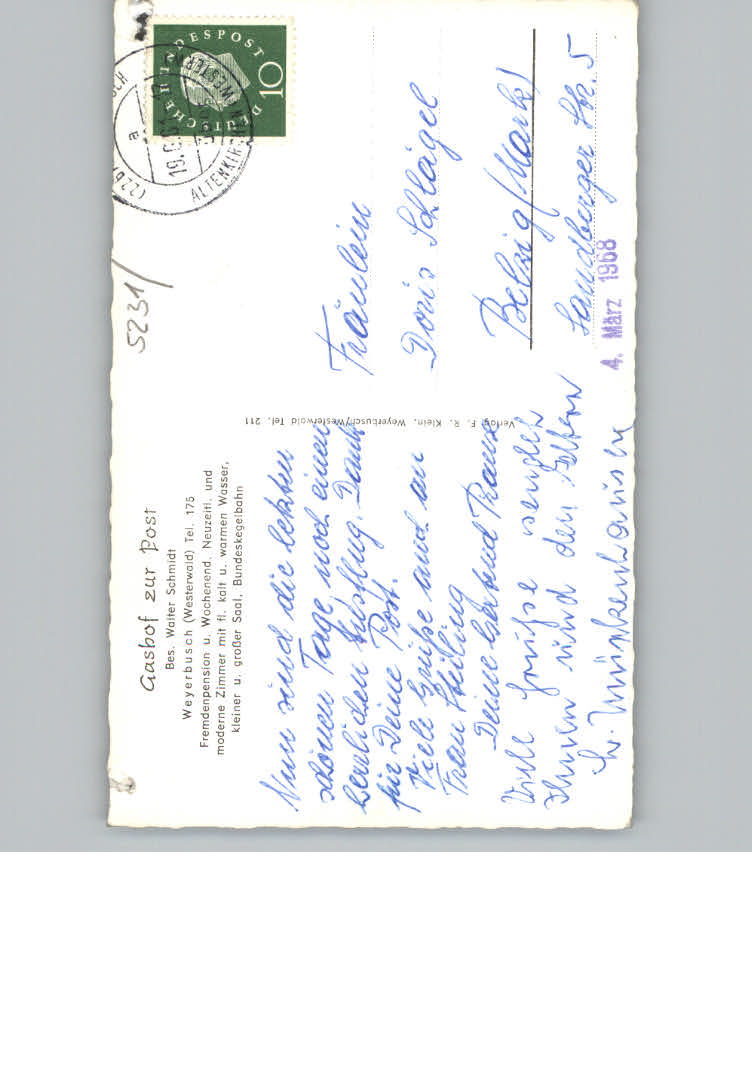 Gasthof zur Post
Bes. Walter Schmidt
Weyerbusch (Westerwald) Tel. 175
Fremdenpension u. Wochenend. Neuzeitl. und
moderne Zimmer mit fl. kalt u. warmen Wasser,
kleiner u. großer Saal, Bundeskegelbahn
Nun sind die letzten
schönen Tage noch einen
herrlichen Ausflug. Dank
für Deine Post.
Viele Grüße auch an
Frau
Deine
Viele Grüße sendet
Ihnen und den Eltern
Verlag: F. R. Klein, Weyerbusch/Westerwald Tel. 211
5231/
DEUTSCHE BUNDESPOST
10
ALTENKIRCHEN (WESTERW)
(22b)
a
Fräulein
Doris Schlägel
Belzig/Mark)
Sandberger Str. 5
4. März 1968